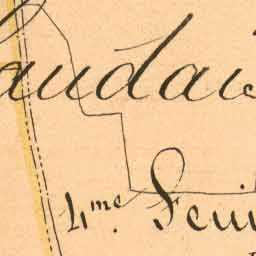 audais
4me. Feui